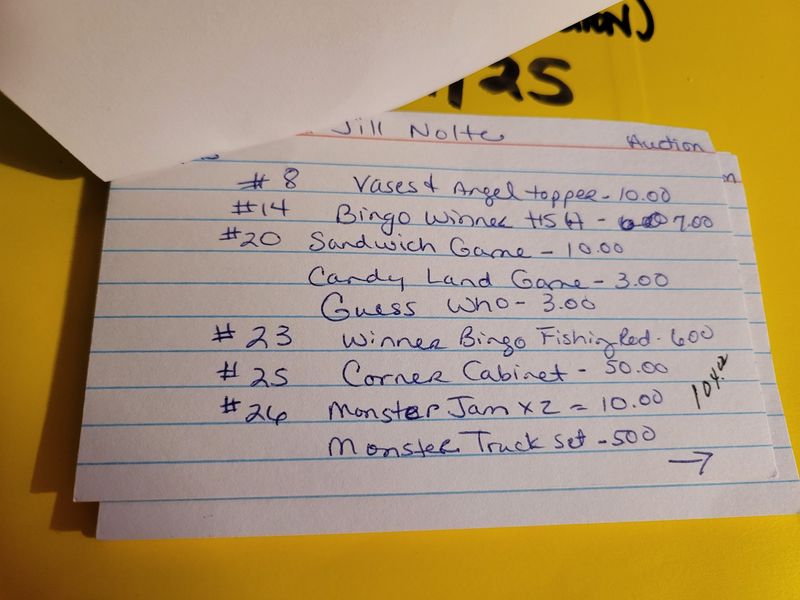 25
Jill Nolte
Auction
#8 Vases & Angel topper - 10.00
#14 Bingo Winner HSH - 7.00
#20 Sandwich Game - 10.00
Candy Land Game - 3.00
Guess Who - 3.00
#23 Winner Bingo Fishing Red - 600
#25 Corner Cabinet - 50.00
#26 Monster Jam x 2 = 10.00
104.00
Monster Truck Set - 500
→